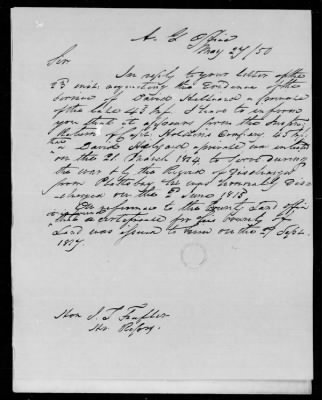 A. G. Office
May 27/50
Sir
In reply to your letter of the
23d inst. requesting the Evidence of the
service of David Hilliard a private
of the late 45 Inf. I have to inform
you that it appears from the Inspn
Return of Capt. Company 45 Inf
a David Halyard private was enlisted
on the 21 March 1814, to serve during
the war & by the Report of discharges
from Plattsburg he was honorably dis
charged on the 2 June 1815.
On reference to the Bounty Land office
that a certificate for his bounty of
Land was issued to him on the 27 Sept.
1817.
Hon J. T.
Ho. Reps.